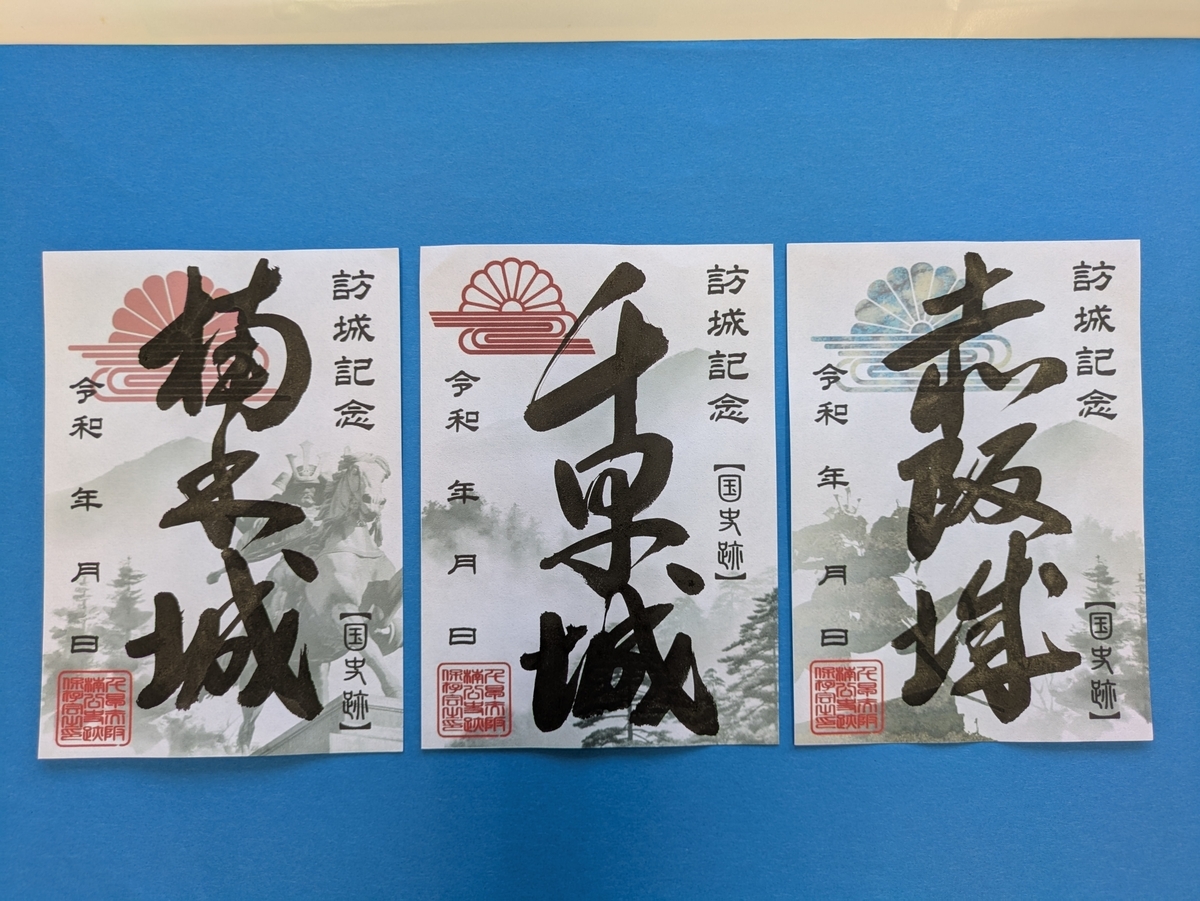 訪城記念
楠木城
【国史跡】
令和 年 月 日
訪城記念
【国史跡】
千早城
令和 年 月 日
訪城記念
【国史跡】
赤阪城
令和 年 月 日